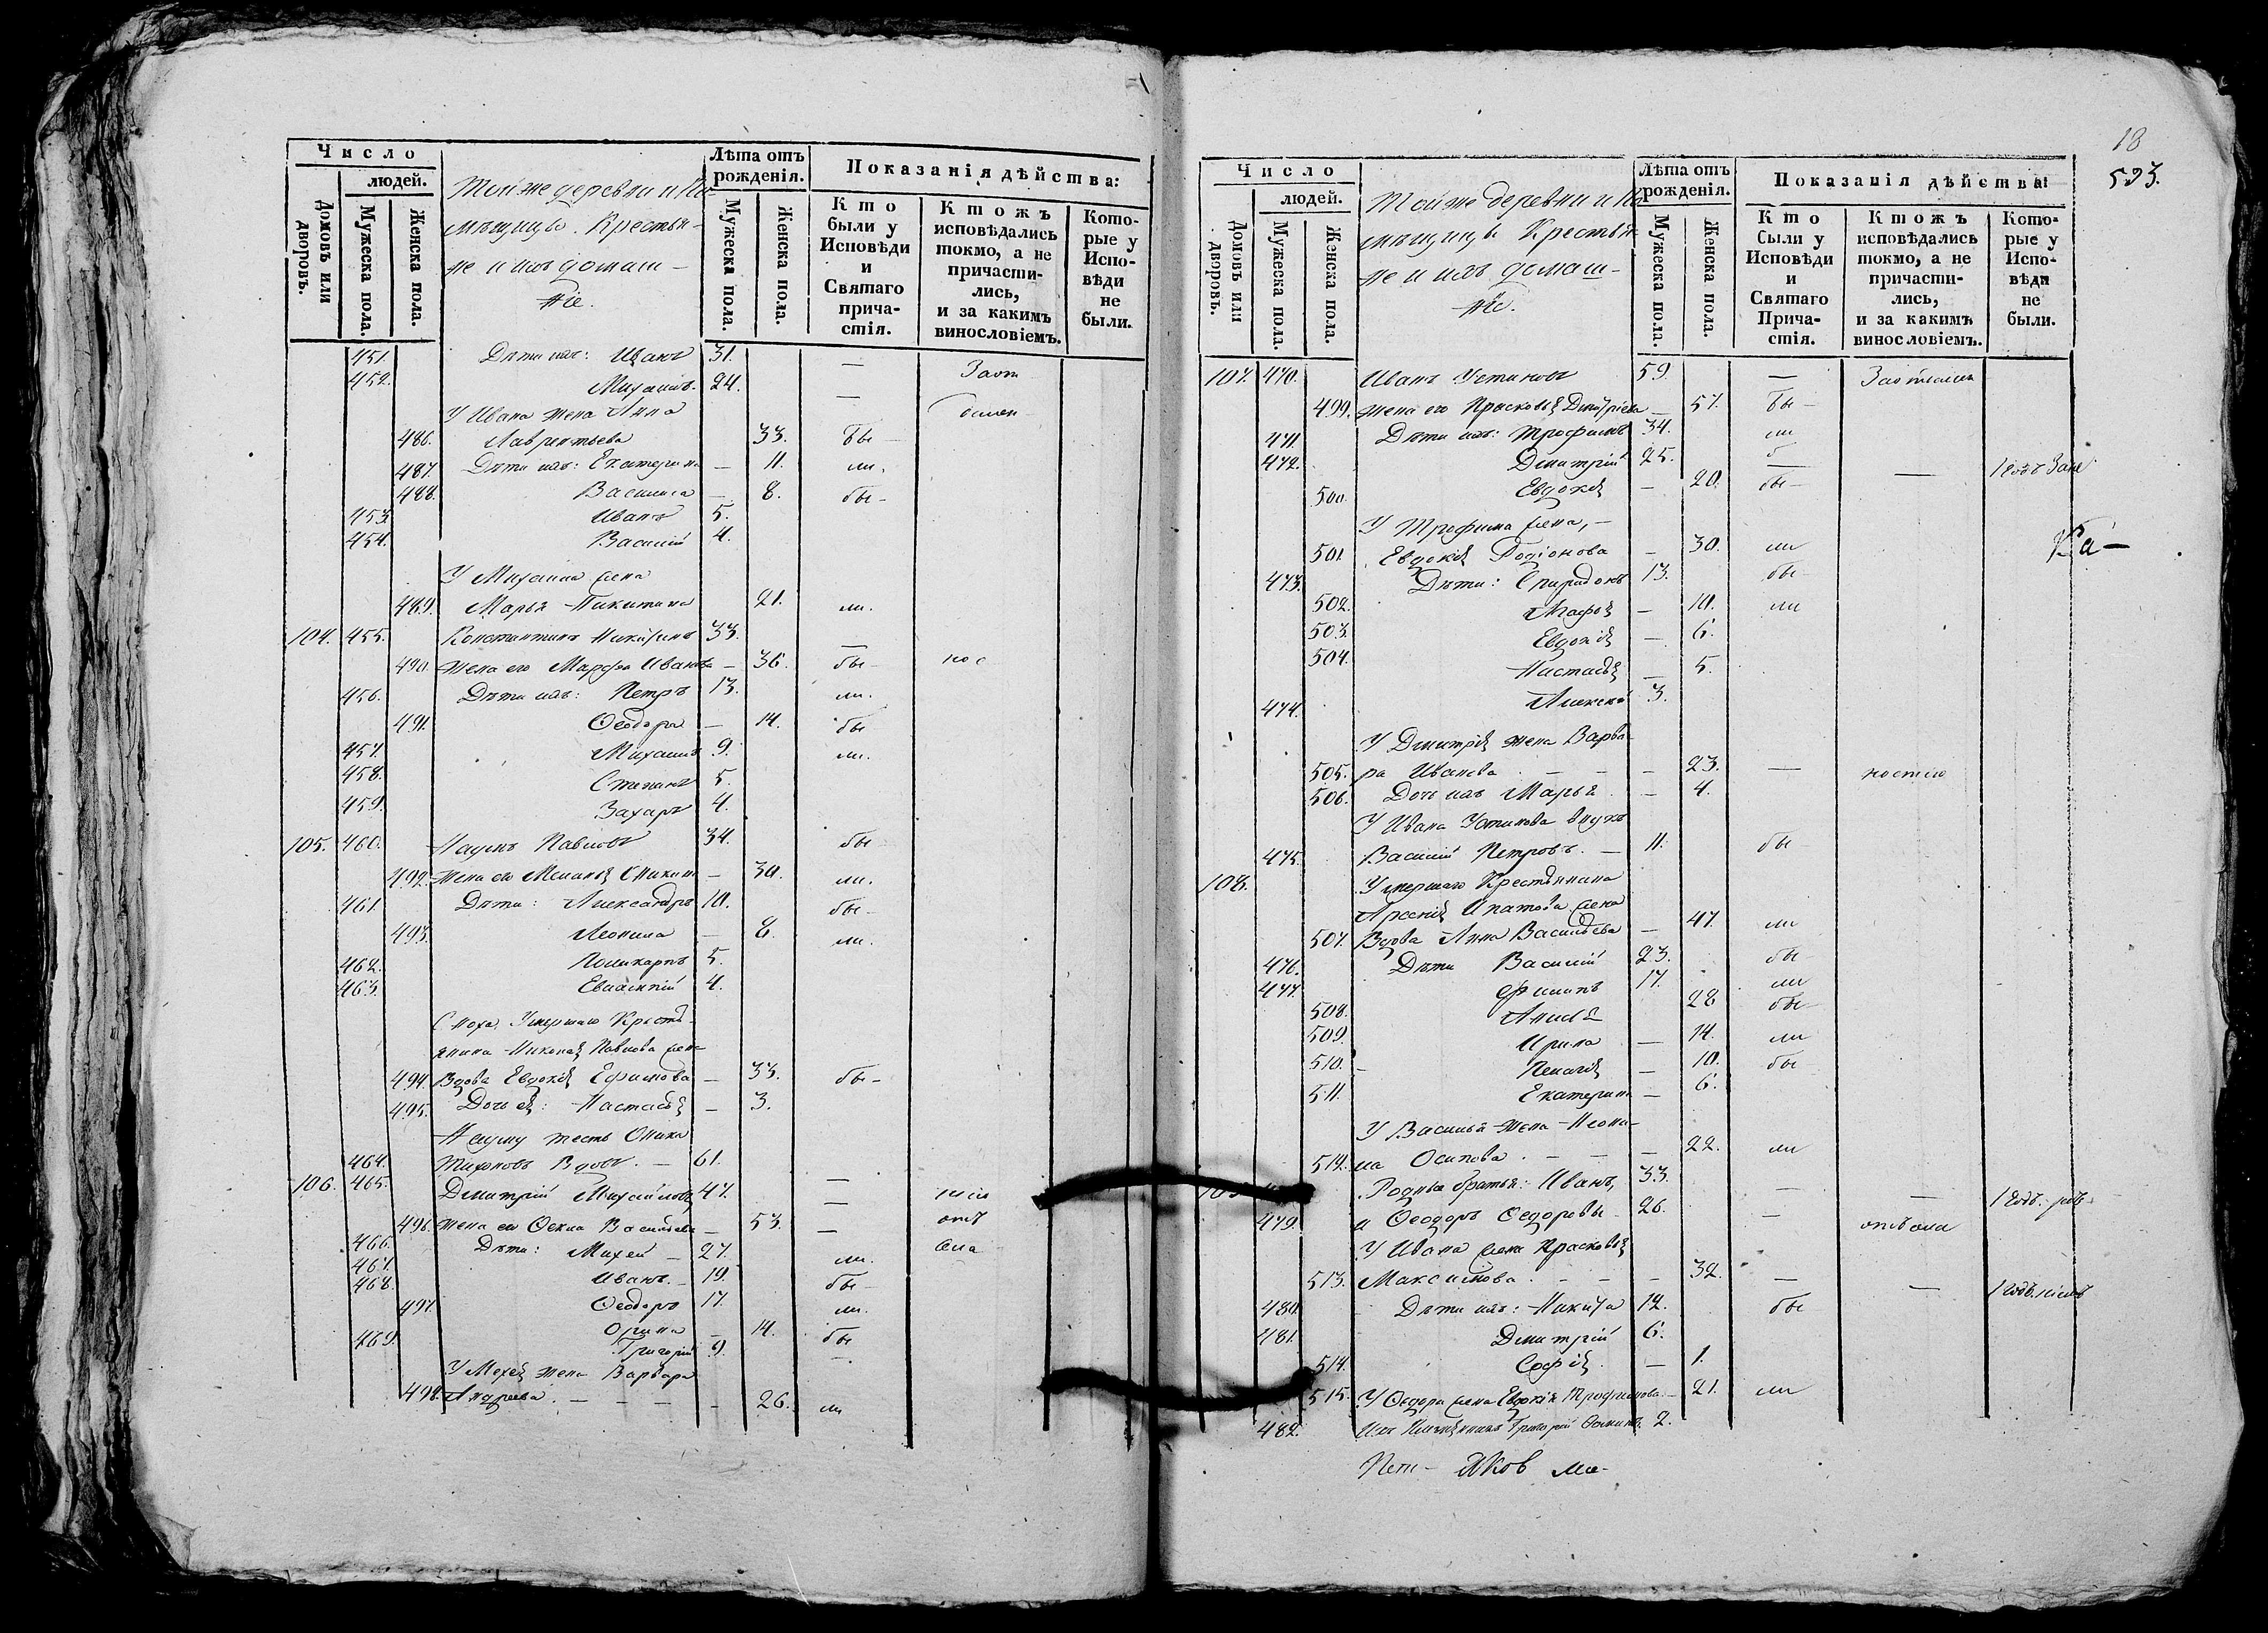 Число
людей.
Домовъ или дворовъ.
Мужеска пола.
Женска пола.
Той же деревни и По-
мѣщицы Крестья-
не и ихъ домаш-
ніе.
Лѣта отъ рожденія.
Мужеска пола.
Женска пола.
Показанія дѣйства:
Кто были у Исповѣди и Святаго прича-стія.
Ктожъ исповѣдались токмо, а не причасти-лись, и за какимъ винословіемъ.
Кото-рые у Испо-вѣди не были.
451. Дѣти ихъ: Иванъ 31. —
452. Михаилъ. 24. —
У Ивана жена Анна
486. Лаврентьева 33. бы-
487. Дѣти ихъ: Екатерина — 11. ли.
488. Василиса — 8. бы-
453. Иванъ 5.
454. Василій 4.
У Михаила жена
489. Марья Никитина 21. ли.
104. 455. Константинъ 33. —
490. жена его Марфа Иванова — 36. бы-
456. Дѣти ихъ: Петръ 13. ли.
491. Ѳеодора — 14. бы
457. Михаилъ 9. ли.
458. Степанъ 5.
459. Захаръ 4.
105. 460. Наумъ Павловъ 34. бы
492. жена его — 30. ли.
461. Дѣти: Александръ 10. бы-
493. Леонила — 8. ли.
462. Поликарпъ 5.
463. 4.
Сноха, Умершаго Кресть-
янина Николая Павлова жена
494. Вдова Евдокія Ефимова — 33. бы-
495. Дочь ея: Настасья — 3.
Науму тесть
464. Тихоновъ Вдовъ. — 61. —
106. 465. Дмитрій Михайловъ 47. —
496. жена его Васильева — 53. —
466. Дѣти: Михей — 27. ли.
467. Иванъ. — 19. бы-
468. Ѳеодоръ 17. ли.
497. Орина — 14. бы
469. Григорій 9. —
У Михея жена Варвара
498. Андреева. — — — — 26. ли
18
Число
людей.
Домовъ или дворовъ.
Мужеска пола.
Женска пола.
Той же деревни и По-
мѣщицы Крестья-
не и ихъ домаш-
ніе.
Лѣта отъ рожденія.
Мужеска пола.
Женска пола.
Показанія дѣйства
Кто были у Исповѣди и Святаго Прича-стія.
Ктожъ исповѣдались токмо, а не причасти-лись, и за какимъ винословіемъ.
Кото-рые у Испо-вѣди не были.
107. 470. Иванъ Устиновъ 59. —
499. жена его Прасковья Дмитріева — 57. бы-
471. Дѣти ихъ: Трофимъ 34. ли
472. Дмитрій 25. — —
500. Евдокія — 20. бы-
У Трофима жена, —
501. Евдокія Родіонова — 30. ли
473. Дѣти: Спиридонъ 13. бы-
502. — 10. ли
503. Евдокія — 6.
504. Настасья — 5.
474. Алексѣй 3.
У Дмитрія жена Варва-
505. ра Иванова — — — 23. —
506. Дочь ихъ Марья — 4.
У Ивана Устинова внукъ
475. Василій Петровъ. — 11. бы
108. Умершаго Крестьянина
Арсенія Ипатова жена
507. Вдова Анна Васильева — 47. ли
476. Дѣти Василій 23. бы-
477. Филипъ 17. ли
508. 28 бы-
509. Ирина — 14. ли
510. Пелагія — 10. бы
511. Екатерина — 6.
У Василья жена Леони-
512. ла Осипова — — — 22. ли
Родные братья: Иванъ, 33. — —
479. и Ѳеодоръ Ѳедоровы 26. —
У Ивана жена Прасковья
513. Максимова. — — — 32. — —
480. Дѣти ихъ: Никита 12. бы
481. Дмитрій 6.
514. Софія. — 1.
515. У Ѳедора жена Евдокія Трофимова — 21. ли
482. Григорій 2.
Яковъ